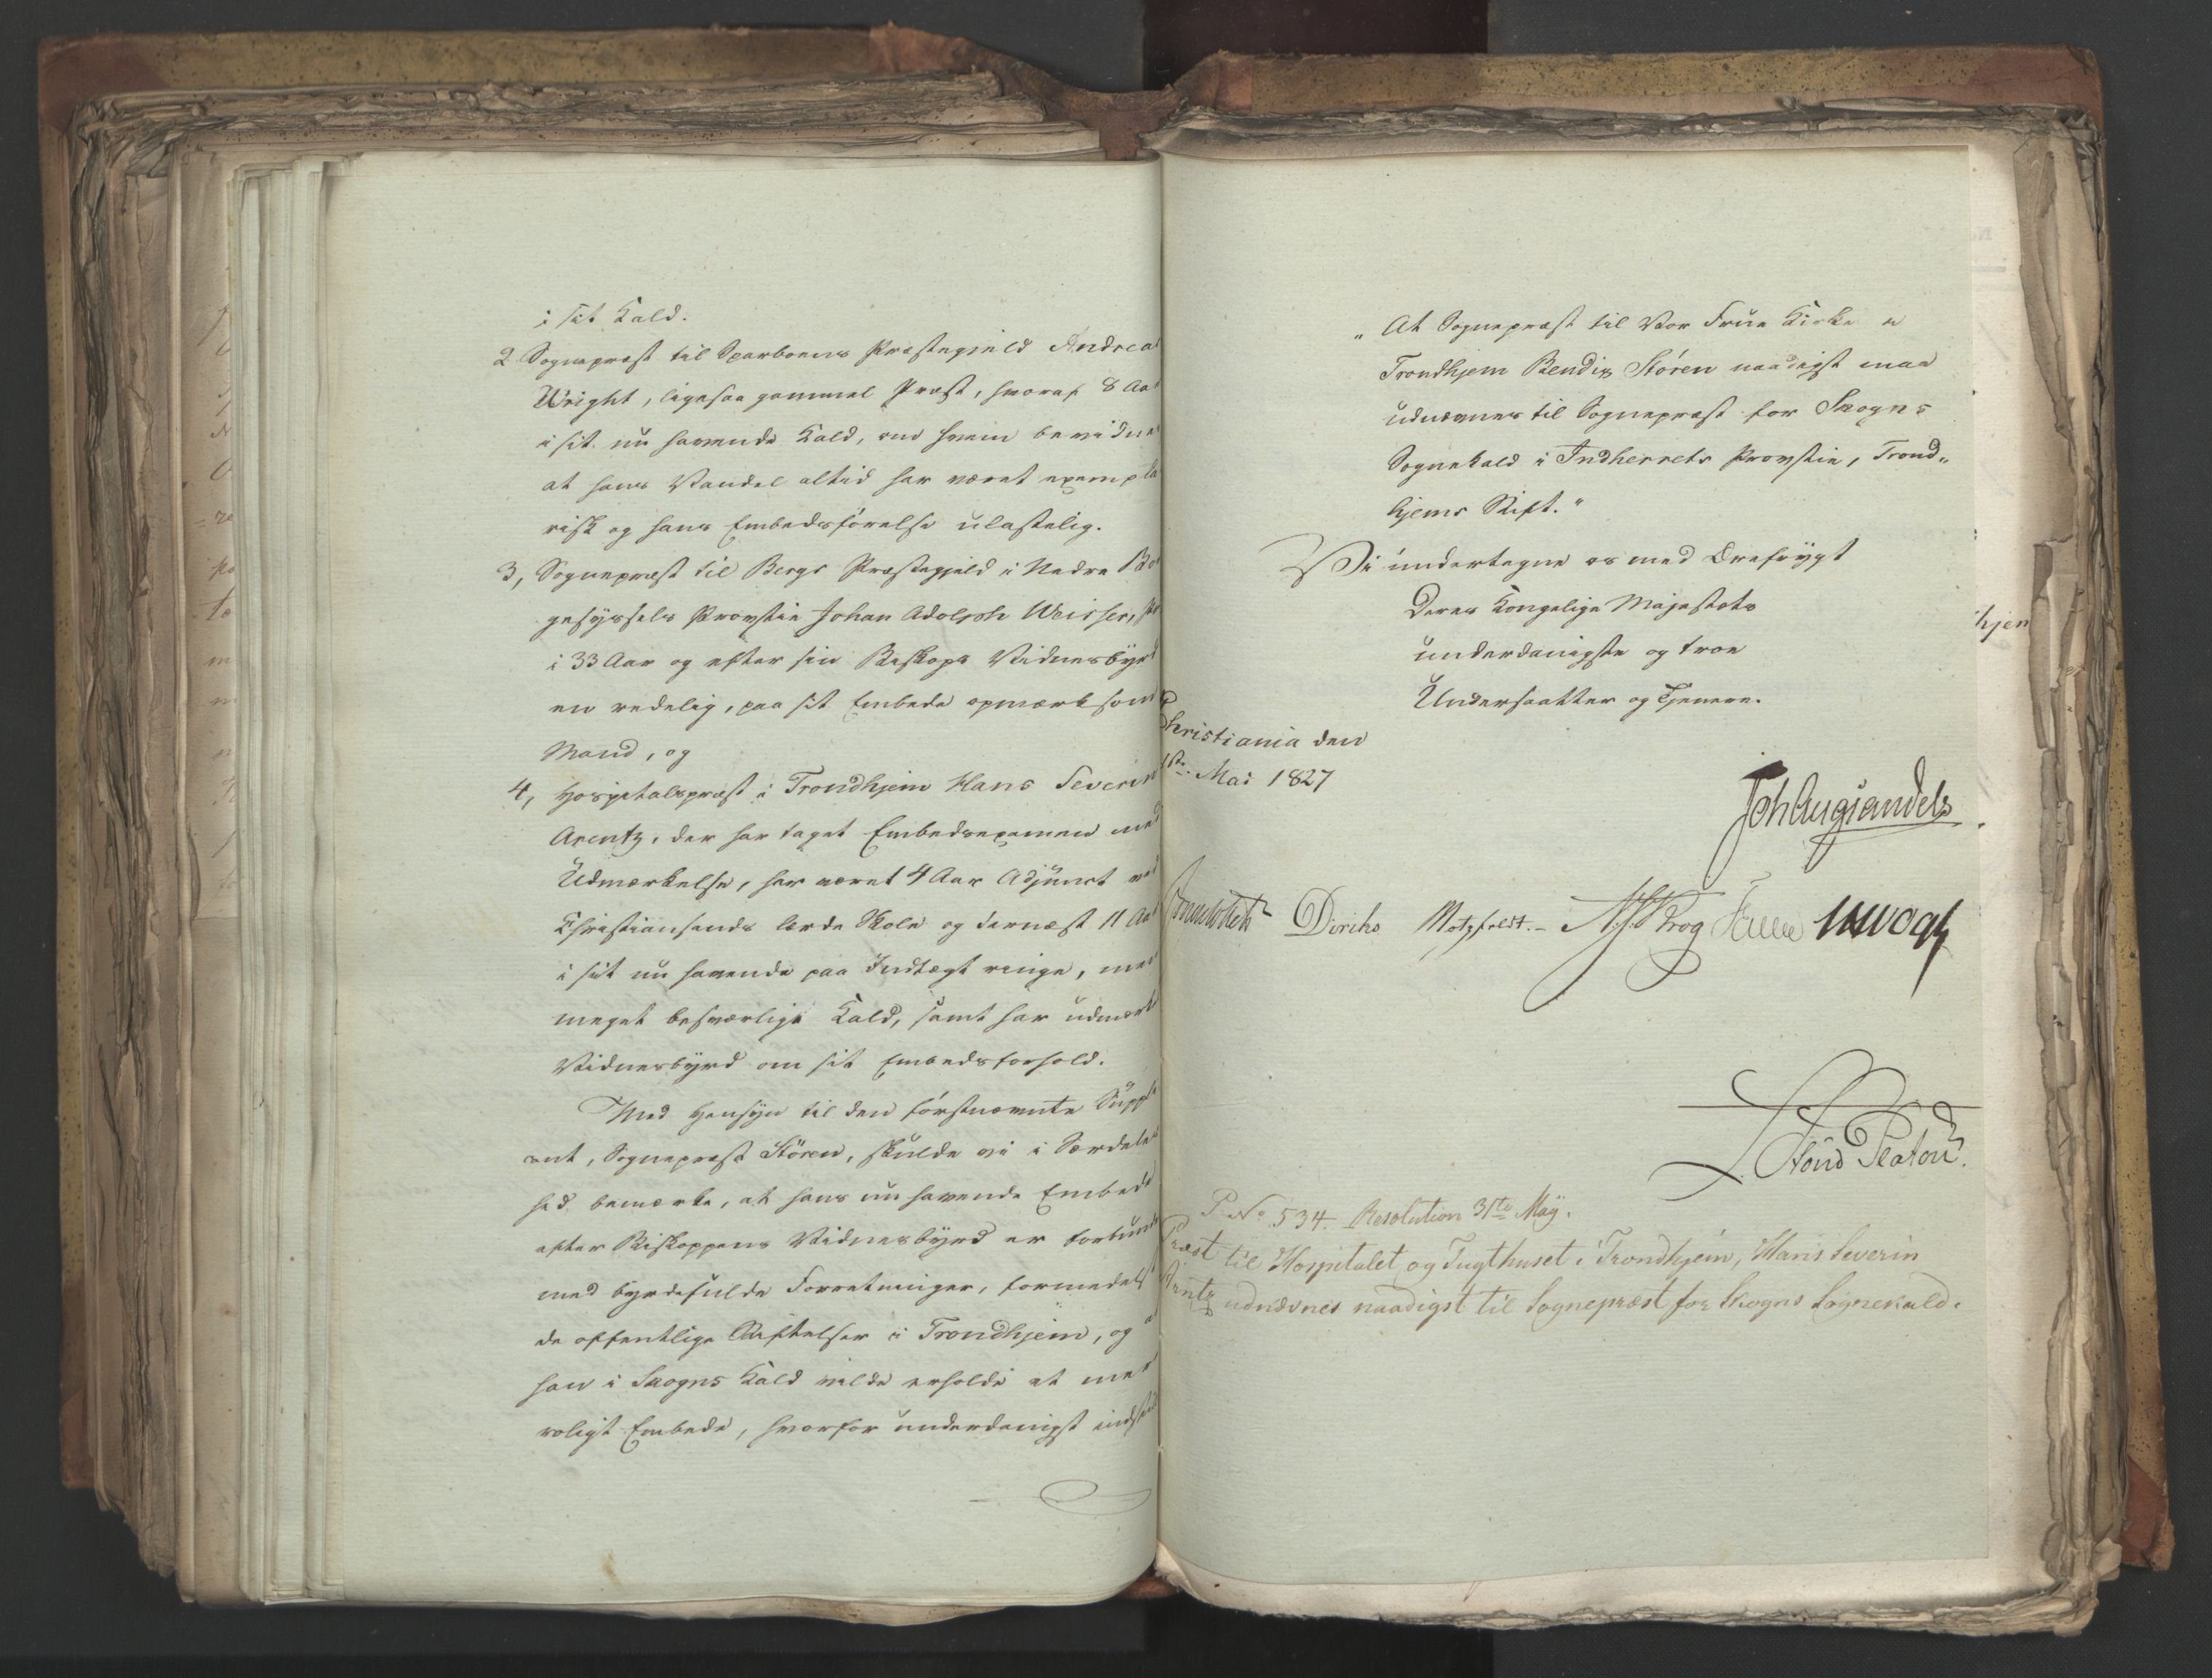 i sit Kald.
2 Sognepræst til Sparboens Præstegjeld Andrea
Wright, ligesaa gammel Præst, hvoraf 8 Aar
i sit nu havende Kald, om hvem bevidne
at hans Vandel altid har været exempla
risk og hans Embedsförelse ulastelig.
3, Sognepræst til Bergs Præstegjeld i Nedre Bor
gesyssels Provstie Johan Adolph Weisser,
i 33 Aar og efter sin Biskops Vidnesbyrd
en redelig, paa sit Embede opmærksom
Mand, og
4, Hospitalspræst i Trondhjem Hans Severin
Arentz, der har taget Embedsexamen med
Udmærkelse, har været 4 Aar Adjunct ved
Christiansands lærde Skole og dernæst 11 Aar
i sit nu havende paa Indtægt ringe, men
meget besværlige Kald, samt har udmærk
Vidnesbyrd om sit Embedsforhold.
Med Hensyn til den förstnævnte Suppli
ant, Sognepræst Stören, skulde vi i Særdeles
hed bemærke, at hans nu havende Embede
efter Biskoppens Vidnesbyrd er forbund
med byrdefulde Forretninger, formedelst
de offentlige Stiftelser i Trondhjem, og a
han i Skogns Kald vilde erholde et mer
roligt Embede, hvorfor underdanigst indstill
„At Sognepræst til Vor Frue Kirke i
Trondhjem Bendix Stören naadigst maa
udnævnes til Sognepræst for Skogns
Sognekald i Indherrets Provstie, Trond„
hjems Stift."
Vi undertegne os med Ærefrygt
Deres Kongelige Majestæts
underdanigste og troe
Undersaatter og Tjenere.
Christiania den
1ste Mai 1827
Joh Aug Sandels
Diriks Motzfeldt.- Krog Vogt
P. No 534. Resolution 31te Maÿ.
Præst til Hospitalet og Tugthuset i Trondhjem, Hans Severin
Arentz udnævnes naadigst til Sognepræst for Skogns Sognekald.
hjem